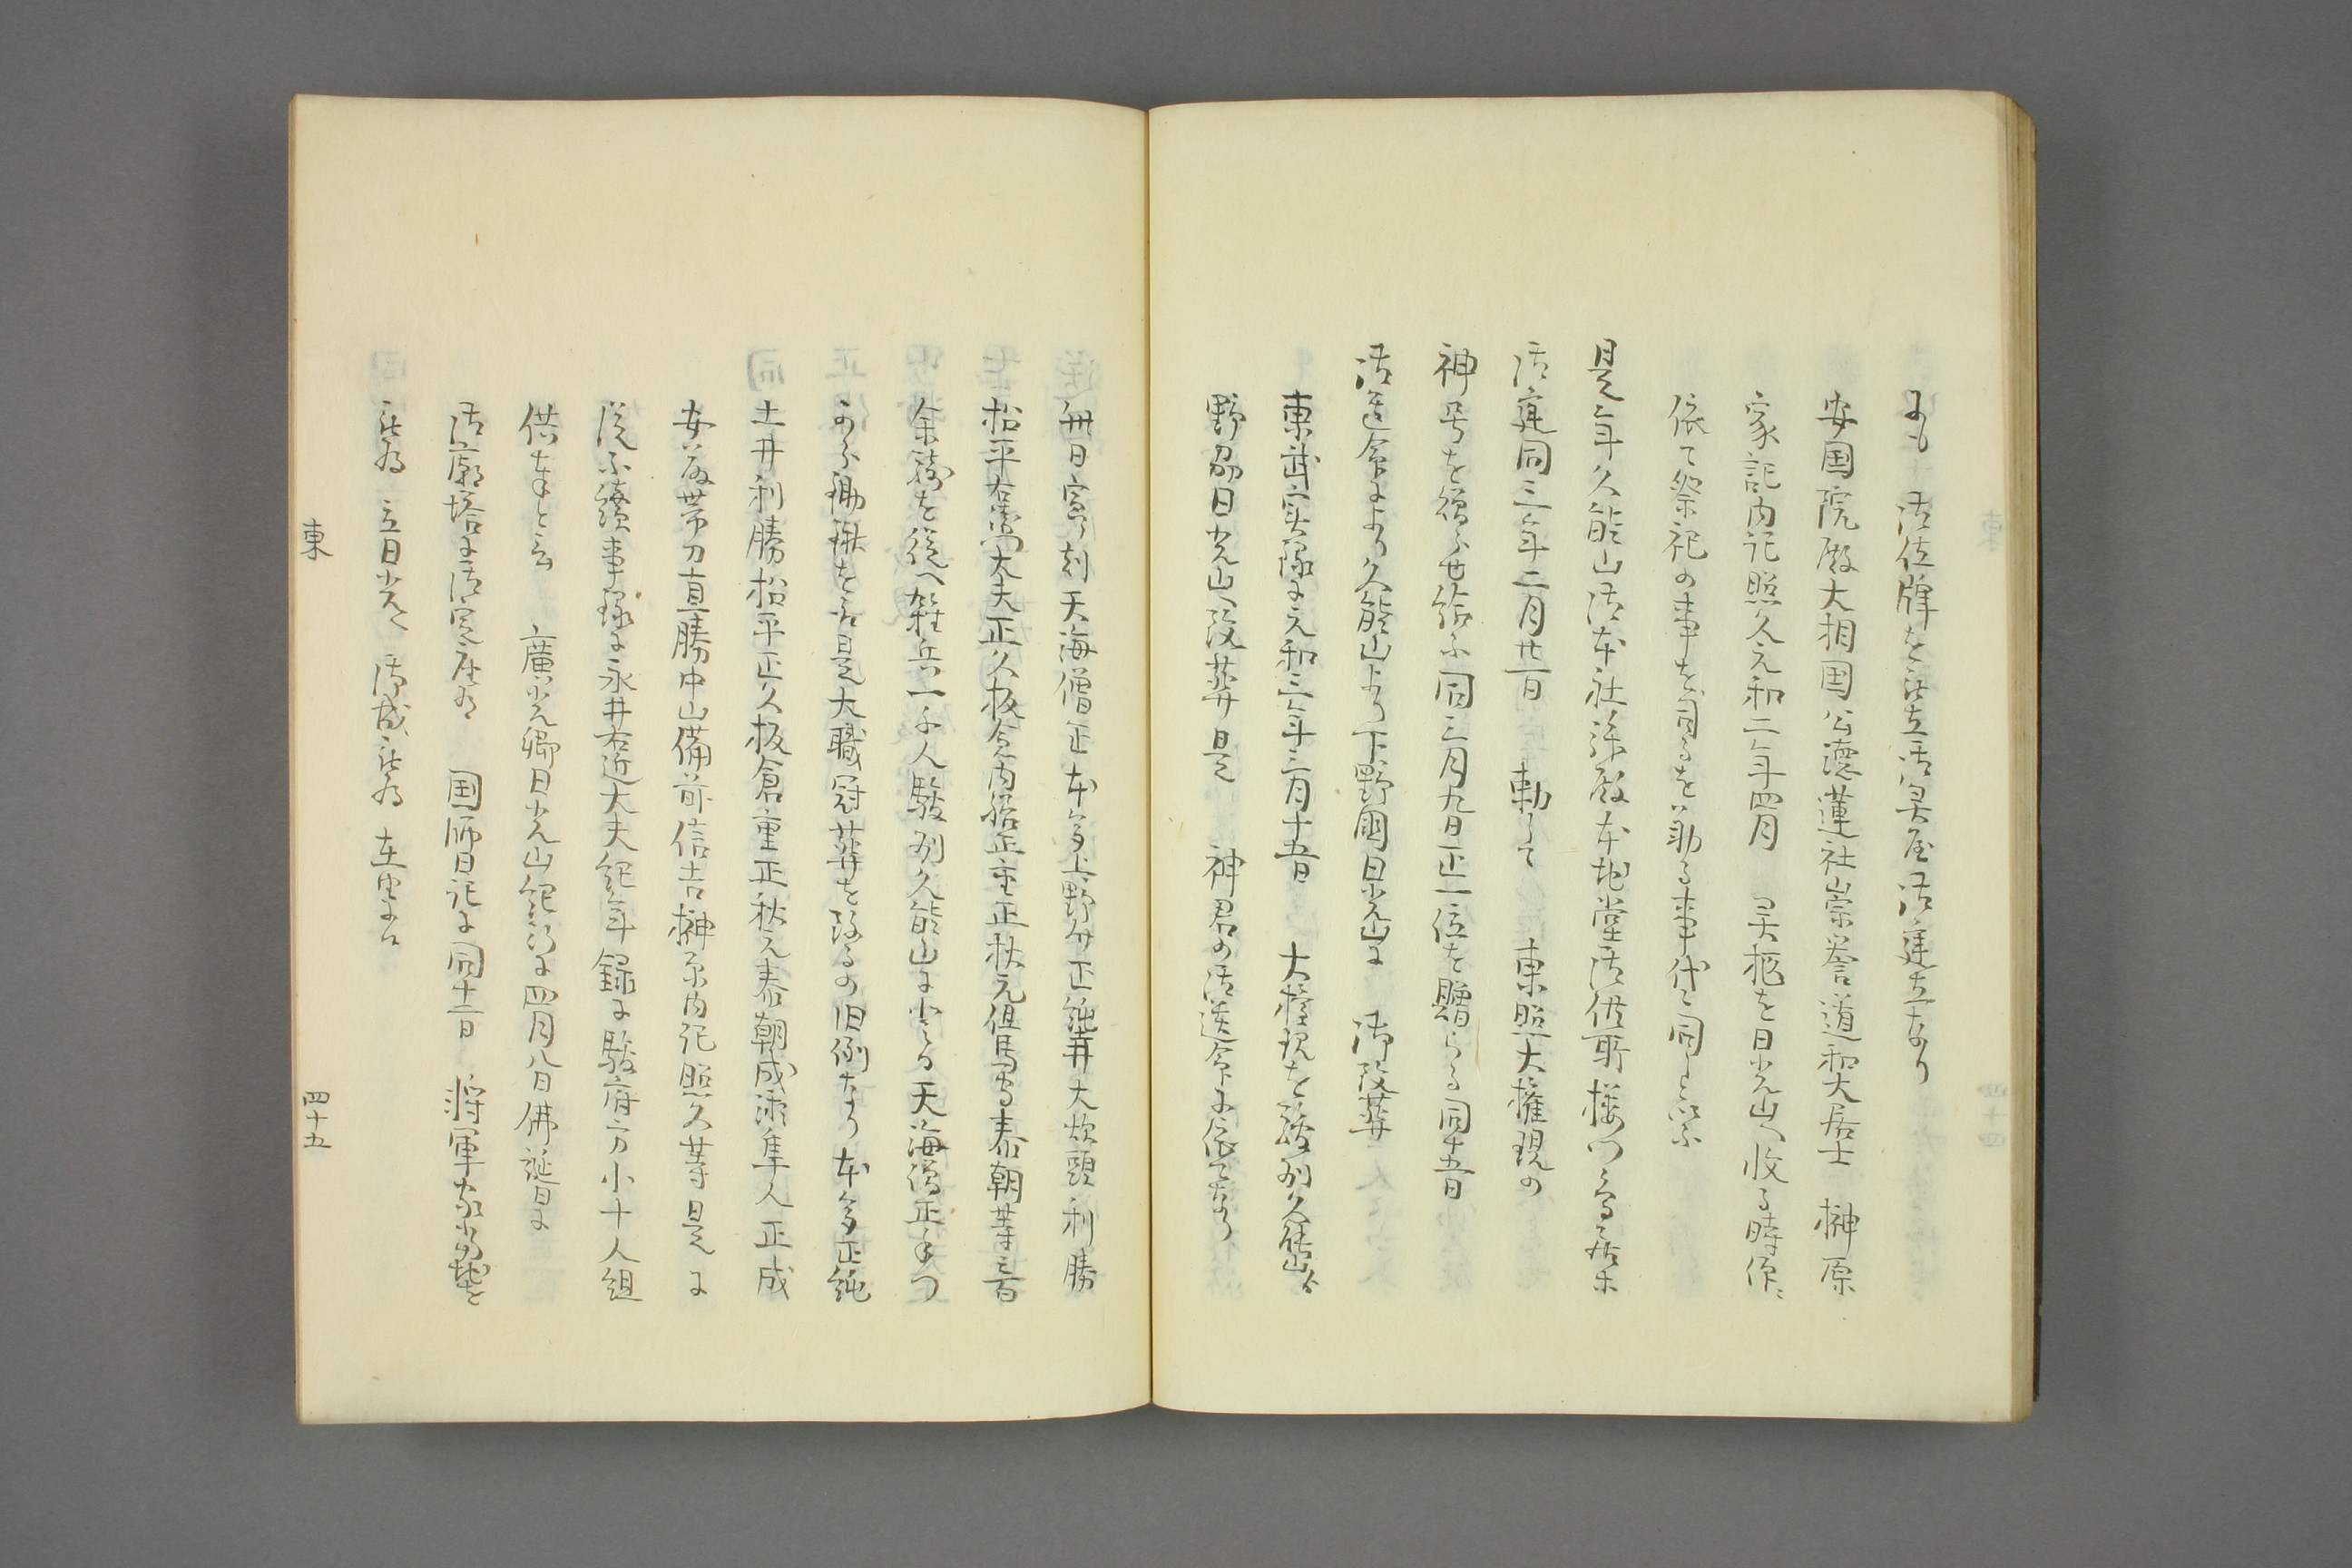 にも　御位牌を被立御霊屋御建立なり
安国院殿大相国公徳蓮社崇誉道和大居士　榊原
家記内記照久元和二年四月　霊柩を日光山へ收る時作
依て祭祀の事を司るを勤る事代々同しと以ふ
是年久能山御本社拝殿本地堂御供所楼門
御建同三年二月廿一日　勅して　東照大権現の
神号を贈らせ給ふ同三月九日正一位を贈らる同十五日
御遺命により久能山より下野國日光山に　御改葬
東武実録に元和三年三月十五日　大権現を駿州久能山
野州日光山へ改葬是　神君の御遺命に依てなり
此日寅ノ刻天海僧正本多上野介正純土井大炊頭利勝
松平右衛門大夫正久板倉内膳正重正秋元但馬守泰朝等三百
余騎を従へ雑兵一千人駿州久能山に至る天海僧正手つ
から鋤鍬を取是大職冠葬を改るの旧例なり本多正純
土井利勝松平正久板倉重正秋元泰朝成瀬隼人正成
安藤帯刀直勝中山備前信吉榊原内記照久等是に
従ふ續事録に永井右近大夫紀年録に駿府方小十人組
供奉と云　廣光卿日光山紀行に四月八日佛誕日に
御廟塔に御定座有　国師日記に同十二日　将軍家
被為　立日光へ　御成被為　在出に
東　四十五